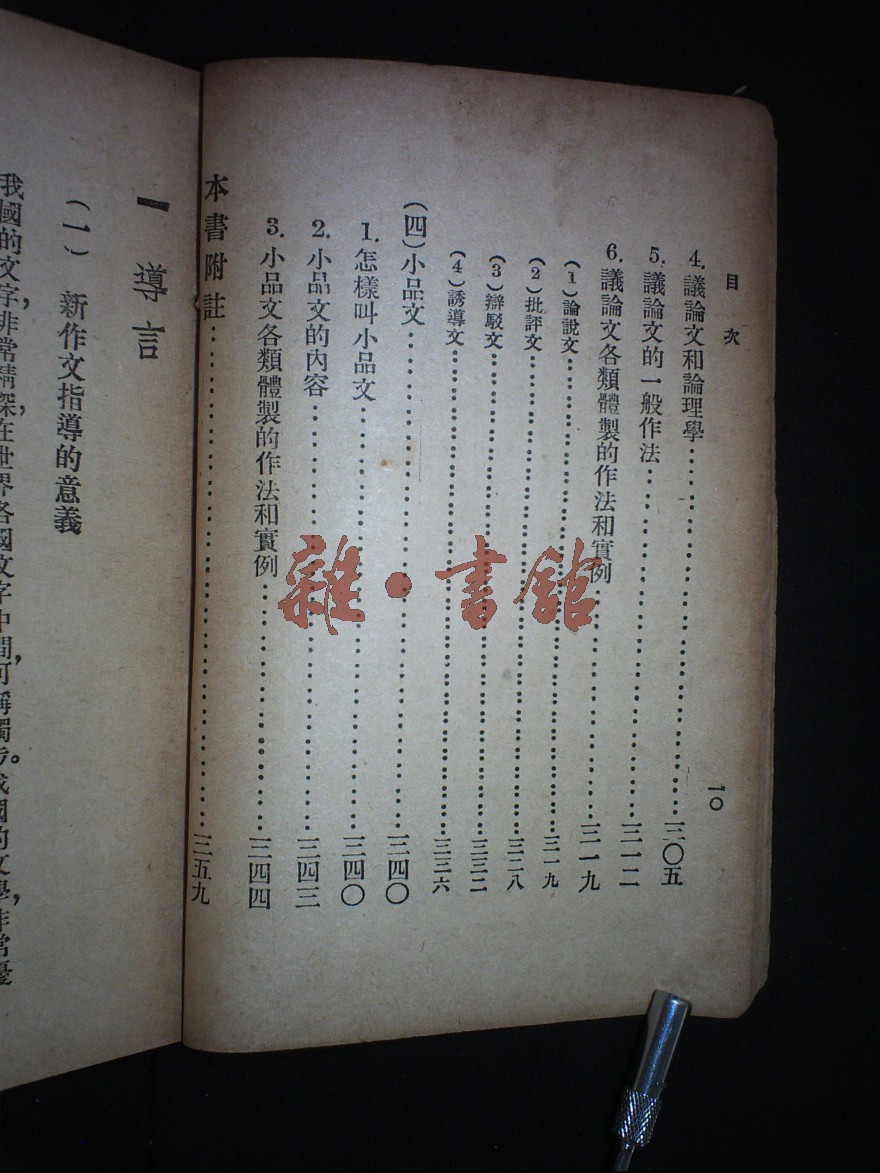 目次
一〇
4. 議論文和論理學……三〇五
5. 議論文的一般作法……三一二
6. 議論文各類體製的作法和實例……三一九
(1)論說文……三一九
(2)批評文……三二八
(3)辯駁文……三三二
(4)誘導文……三三六
(四)小品文……三四〇
1. 怎樣叫小品文……三四〇
2. 小品文的內容……三四三
3. 小品文各類體製的作法和實例……三四四
本書附註……三五九
一 導言
(一) 新作文指導的意義
我國的文字，非常精深，在世界各國文字中間，可稱獨步。我國的文學，非常優
雜·書館